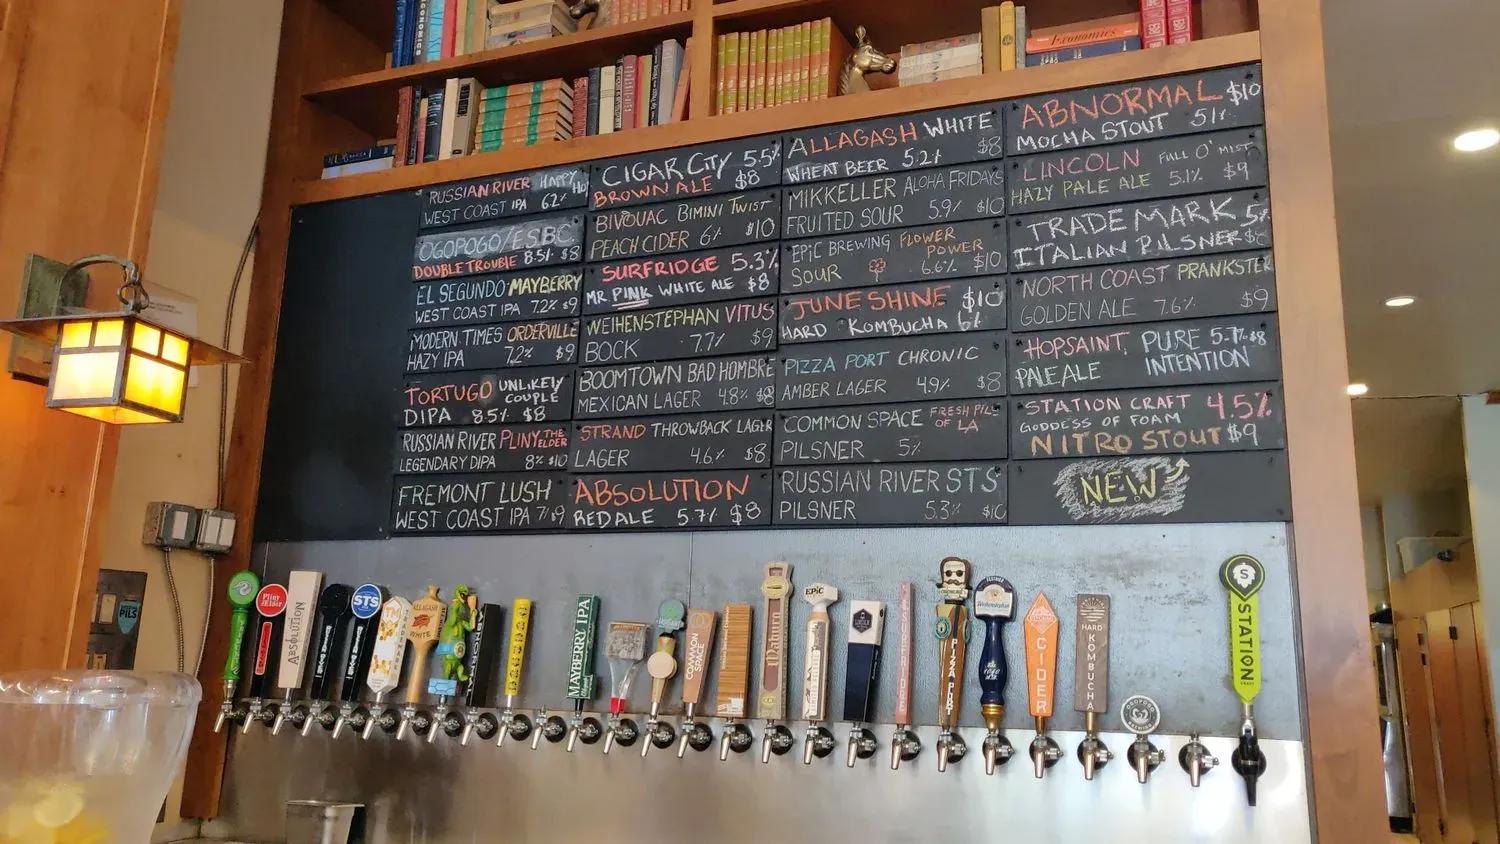 Economics
RUSSIAN RIVER HAPPY HO
WEST COAST IPA 6.2%
OGOPOGO/ESBC
DOUBLE TROUBLE 8.5% $8
EL SEGUNDO MAYBERRY
WEST COAST IPA 7.2% $9
MODERN TIMES ORDERVILLE
HAZY IPA 7.2% $9
TORTUGO UNLIKELY COUPLE
DIPA 8.5% $8
RUSSIAN RIVER PLINY THE ELDER
LEGENDARY DIPA 8% $10
FREMONT LUSH
WEST COAST IPA 7% $9
CIGAR CITY 5.5%
BROWN ALE $8
BIVOUAC BIMINI TWIST
PEACH CIDER 6% $10
SURFRIDGE 5.3%
MR PINK WHITE ALE $8
WEIHENSTEPHAN VITUS
BOCK 7.7% $9
BOOMTOWN BAD HOMBRE
MEXICAN LAGER 4.8% $8
STRAND THROWBACK LAGER
LAGER 4.6% $8
ABSOLUTION
RED ALE 5.7% $8
ALLAGASH WHITE
WHEAT BEER 5.2% $8
MIKKELLER ALOHA FRIDAYS
FRUITED SOUR 5.9% $10
EPIC BREWING FLOWER POWER
SOUR 6.6% $10
JUNE SHINE $10
HARD KOMBUCHA 6%
PIZZA PORT CHRONIC
AMBER LAGER 4.9% $8
COMMON SPACE FRESH PILS OF LA
PILSNER 5%
RUSSIAN RIVER STS
PILSNER 5.3% $10
ABNORMAL $10
MOCHA STOUT 5%
LINCOLN FULL O' MIST
HAZY PALE ALE 5.1% $9
TRADE MARK 5%
ITALIAN PILSNER $8
NORTH COAST PRANKSTER
GOLDEN ALE 7.6% $9
HOPSAINT PURE 5.7% $8
PALE ALE INTENTION
STATION CRAFT 4.5%
GODDESS OF FOAM
NITRO STOUT $9
NEW
PILS
Pliny the Elder
ABSOLUTION
STS
TRADEMARK
ALLAGASH
WHITE
ABNORMAL
MAYBERRY IPA
COMMON SPACE
Maduro
EPIC
LINCOLN
PIZZA PORT
CIDER
HARD
KOMBUCHA
S
STATION
CRAFT